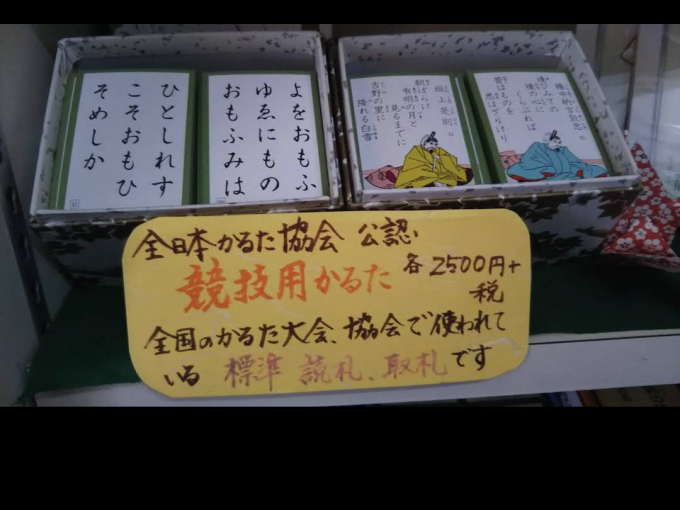 ひとしれす
こそおもひ
そめしか
よをおもふ
ゆゑにもの
おもふみは
坂上是則
朝ぼらけ
有明の月と
見るまでに
吉野の里に
降れる白雪
権中納言敦忠
逢ひみての
後の心に
くらぶれば
昔はものを
思はざりけり
全日本かるた協会 公認
競技用かるた 各2500円+
税
全国のかるた大会、協会で使われて
いる 標準 読札、取札です